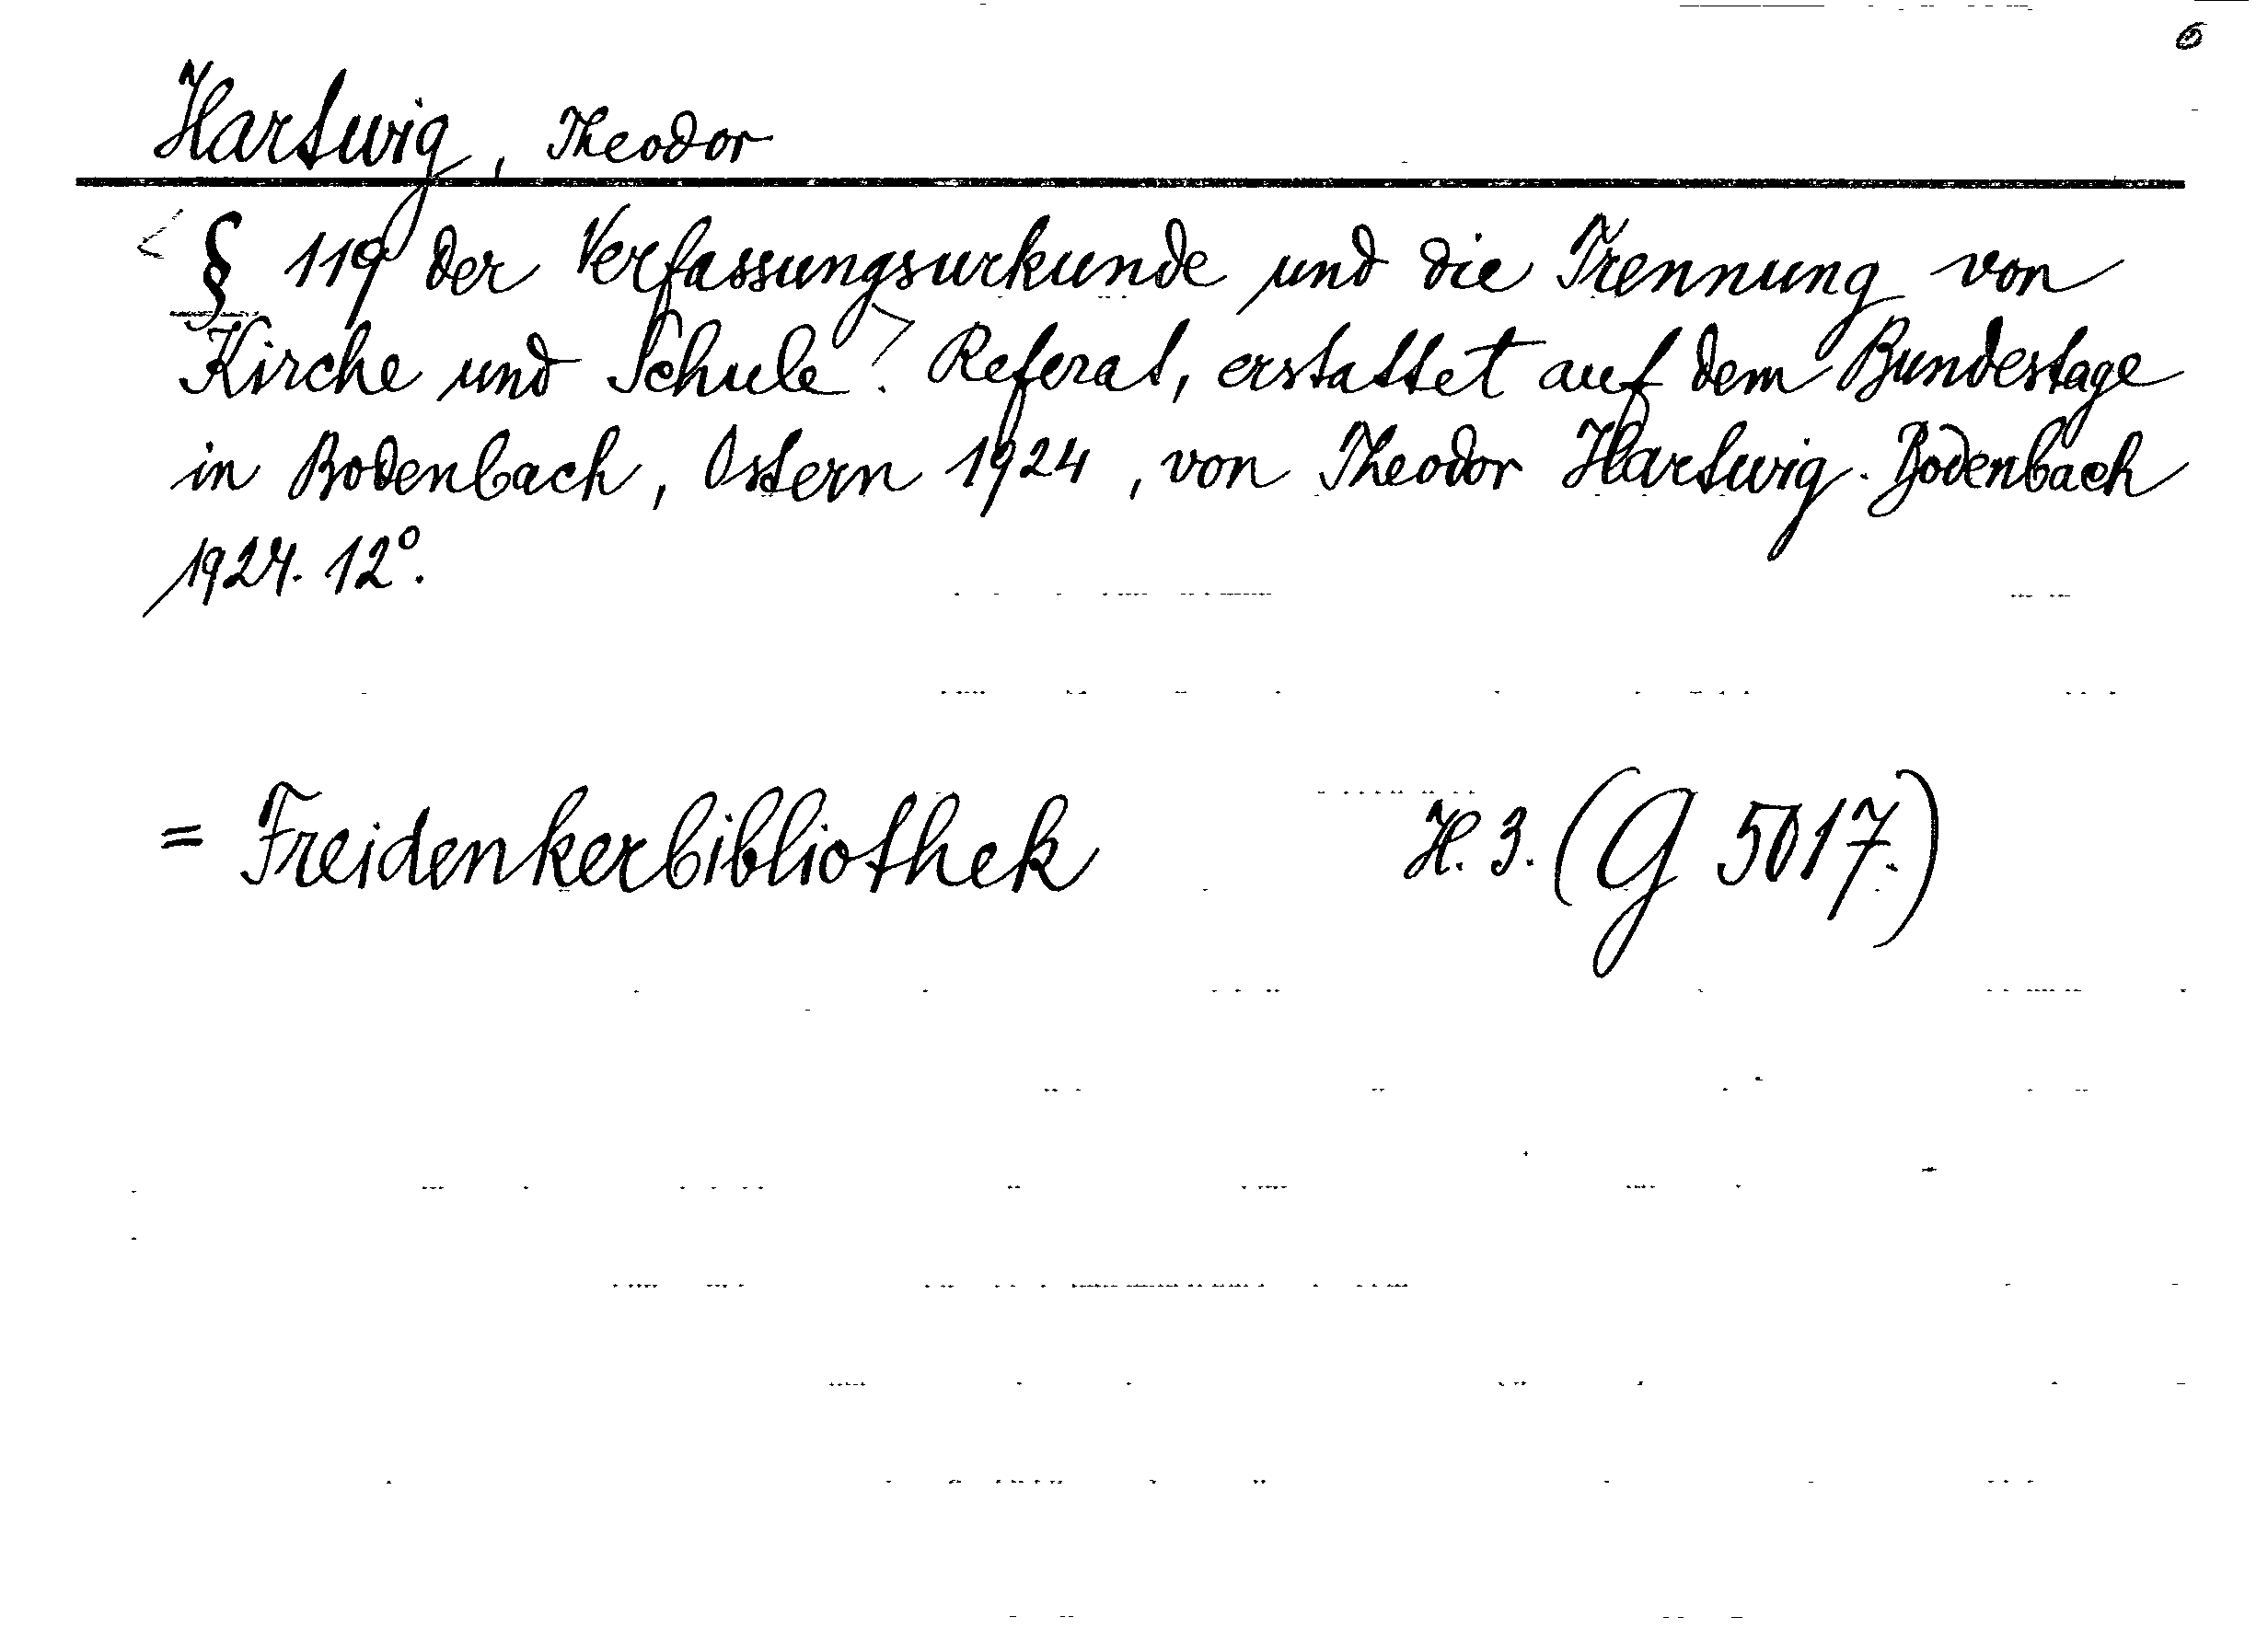 6
Hartwig, Theodor
< § 119 der Verfassungsurkunde und die Trennung von
Kirche und Schule >. Referat, erstattet auf dem Bundestage
in Bodenbach, Ostern 1924, von Theodor Hartwig. Bodenbach
1924. 12°.
= Freidenkerbibliothek H. 3. (G 5017.)